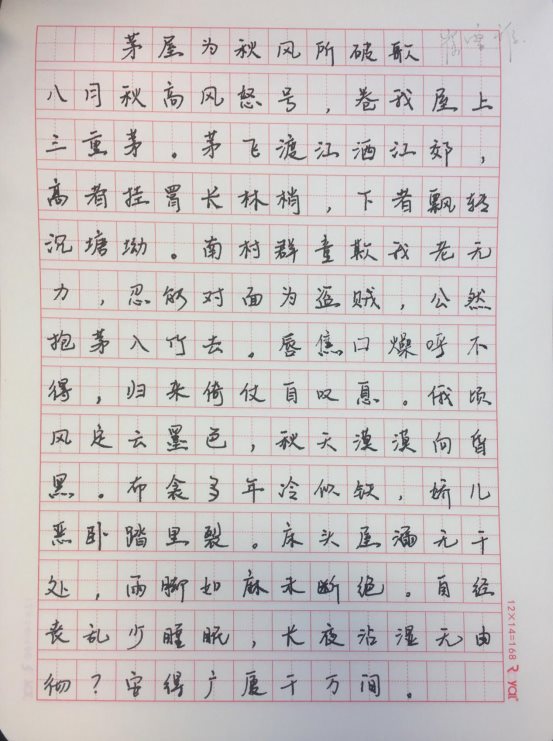 茅屋为秋风所破歌
八月秋高风怒号，卷我屋上
三重茅。茅飞渡江洒江郊，
高者挂罥长林梢，下者飘轻
沉塘坳。南村群童欺我老无
力，忍能对面为盗贼，公然
抱茅入竹去。唇焦口燥呼不
得，归来倚仗自叹息。俄顷
风定云墨色，秋天漠漠向昏
黑。布衾多年冷似铁，娇儿
恶卧踏里裂。床头屋漏无干
处，雨脚如麻未断绝。自经
丧乱少睡眠，长夜沾湿无由
彻？安得广厦千万间。
12×14=168